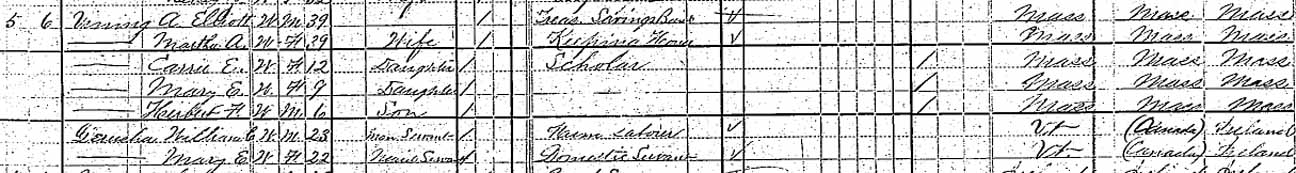 5 6 A. Elliott W M 39 / Treas. Savings Bank ✓ Mass Mass Mass
Martha A. W F 39 Wife / Keeping House ✓ Mass Mass Mass
Carrie E. W F 12 Daughter / Scholar / Mass Mass Mass
Mary E. W F 9 Daughter / / Mass Mass Mass
Herbert F. W M 6 Son / / Mass Mass Mass
William E W M 23 Man Servant / Farm Laborer ✓ Vt (Canada) Ireland
Mary E. W F 22 Maid Servant / Domestic Servant ✓ Vt (Canada) Ireland